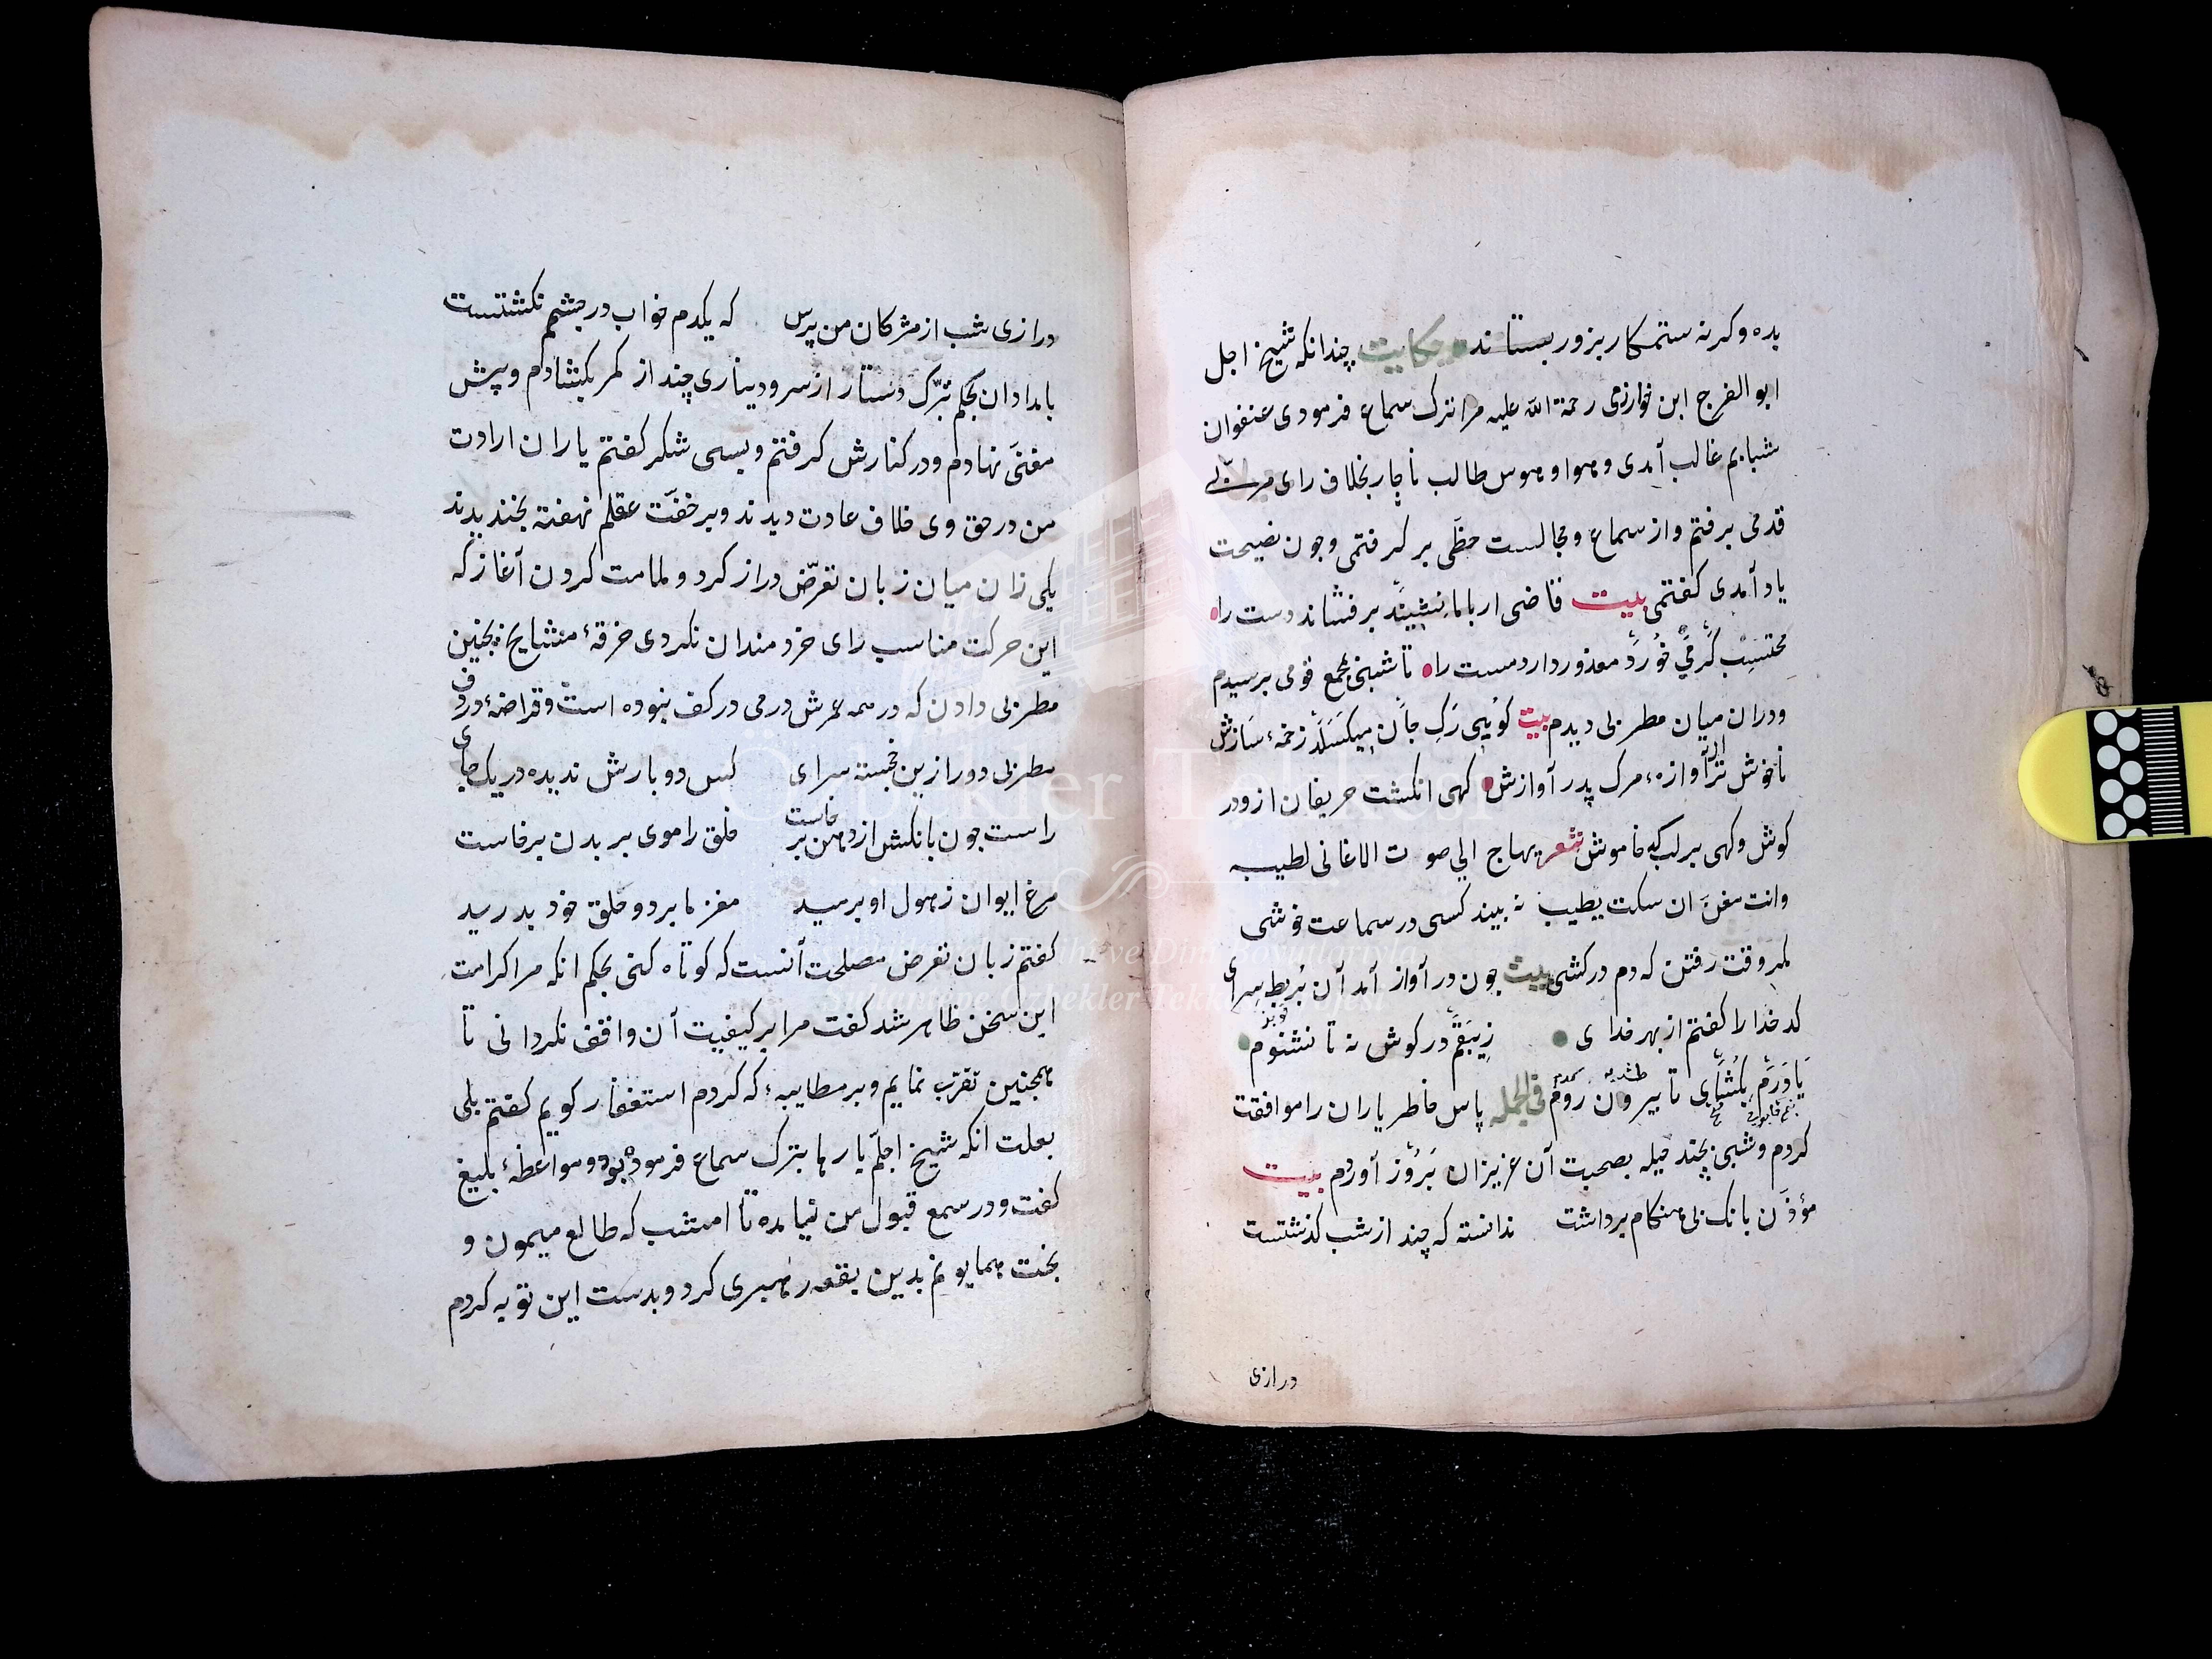 بده وكرنه ستمكار بزور بستاند حكايت چندانكه شيخ اجل
ابو الفرج ابن خوارزمى رحمة الله عليه مرا ترك سماع فرمودى عنفوان
شبابم غالب آمدى وهوا وهوس طالب ناچار بخلاف راى مربى
قدمى برفتم واز سماع ومجالست حظى بر كرفتمى وجون نصيحت
ياد آمدى كفتمى بيت قاضى ار باما نشيند بر فشاند دست راه
محتسب كر مى خورد معذور دارد مست راه تا شبى بمجمع قومى برسيدم
ودران ميان مطربى ديدم بيت كويى رك جان ميكسلد زخمه ء سازش
ناخوش تر از آوازه ء مرك پدر آوازش كهى انكشت حريفان ازو در
كوش وكهى بر لب كه خاموش شعر يهاج الي صوت الاغانى لطيبه
وانت مغن ان سكت يطيب نه بيند كسى در سماعت خوشى
مكر وقت رفتن كه دم در كشى بيت جون در آواز آمد آن بربط سراى
كدخدا را كفتم از بهر خداى زيبقم در كوش نه تا نشنوم
ياورم بكشاى تا بيرون روم فى الجمله پاس خاطر ياران را موافقت
كردم وشبى بچند حيله بصحبت آن عزيزان بروز آوردم بيت
مؤذن بانك بى هنكام برداشت ندانسته كه چند از شب كذشتست
درازى
درازى شب از مژكان من پرس كه يكدم خواب در چشمم نكشتست
بامدادان بحكم تبرك دستار از سر ودينارى چند از كمر بكشادم وپيش
مغنى نهادم ودر كنارش كرفتم وبسى شكر كفتم ياران ارادت
من در حق وى خلاف عادت ديدند وبر خفت عقلم نهفته بخنديدند
يكى زان ميان زبان تعرض دراز كرد وملامت كردن آغاز كه
اين حركت مناسب راى خردمندان نكردى خرقه ء مشايخ بچنين
مطربى دادن كه در همه عمرش درمى در كف نبوده است وقراضه ء در دف
مطربى دور ازين خجسته سراى كس دو بارش نديده در يك جاى
راست جون بانكش از دهن بر خاست خلق را موى بر بدن برخاست
مرغ ايوان ز هول او برميد مغز ما برد وحلق خود بدريد
كفتم زبان تعرض مصلحت آنست كه كوتاه كنى بحكم انكه مرا كرامت
اين سخن ظاهر شد كفت مرا بر كيفيت آن واقف نكردانى تا
همچنين تقرب نمايم وبر مطايبه ء كه كردم استغفار كويم كفتم بلى
بعلت انكه شيخ اجلم بارها بترك سماع فرموده بود ومواعظه ء بليغ
كفت ودر سمع قبول من نيامده تا امشب كه طالع ميمون و
بخت همايونم بدين بقعه رهبرى كرد وبدست اين توبه كردم